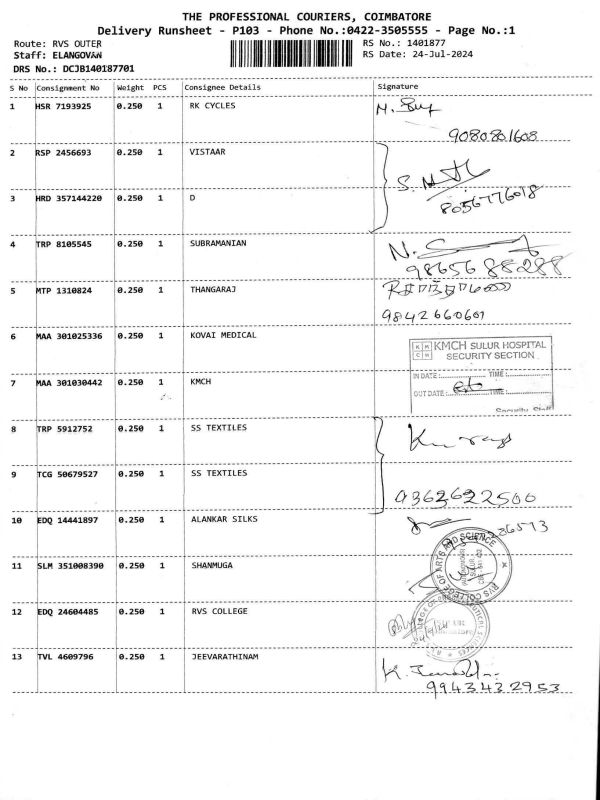 THE PROFESSIONAL COURIERS, COIMBATORE
Delivery Runsheet - P103 - Phone No.:0422-3505555 - Page No.:1
Route: RVS OUTER
Staff: ELANGOVAN
DRS No.: DCJB140187701
RS No.: 1401877
RS Date: 24-Jul-2024
S No Consignment No Weight PCS Consignee Details Signature
1 HSR 7193925 0.250 1 RK CYCLES
9080801608
2 RSP 2456693 0.250 1 VISTAAR
3 HRD 357144220 0.250 1 D
8056776018
4 TRP 8105545 0.250 1 SUBRAMANIAN
9865688288
5 MTP 1310824 0.250 1 THANGARAJ
9842660601
6 MAA 301025336 0.250 1 KOVAI MEDICAL
KMCH SULUR HOSPITAL
SECURITY SECTION
IN DATE: TIME:
7 MAA 301030442 0.250 1 KMCH
OUT DATE: TIME:
Security Staff
8 TRP 5912752 0.250 1 SS TEXTILES
9 TCG 50679527 0.250 1 SS TEXTILES
9362622500
10 EDQ 14441897 0.250 1 ALANKAR SILKS
36573
RVS COLLEGE OF ARTS AND SCIENCE
SULUR
11 SLM 351008390 0.250 1 SHANMUGA
12 EDQ 24604485 0.250 1 RVS COLLEGE
13 TVL 4609796 0.250 1 JEEVARATHINAM
9943432953